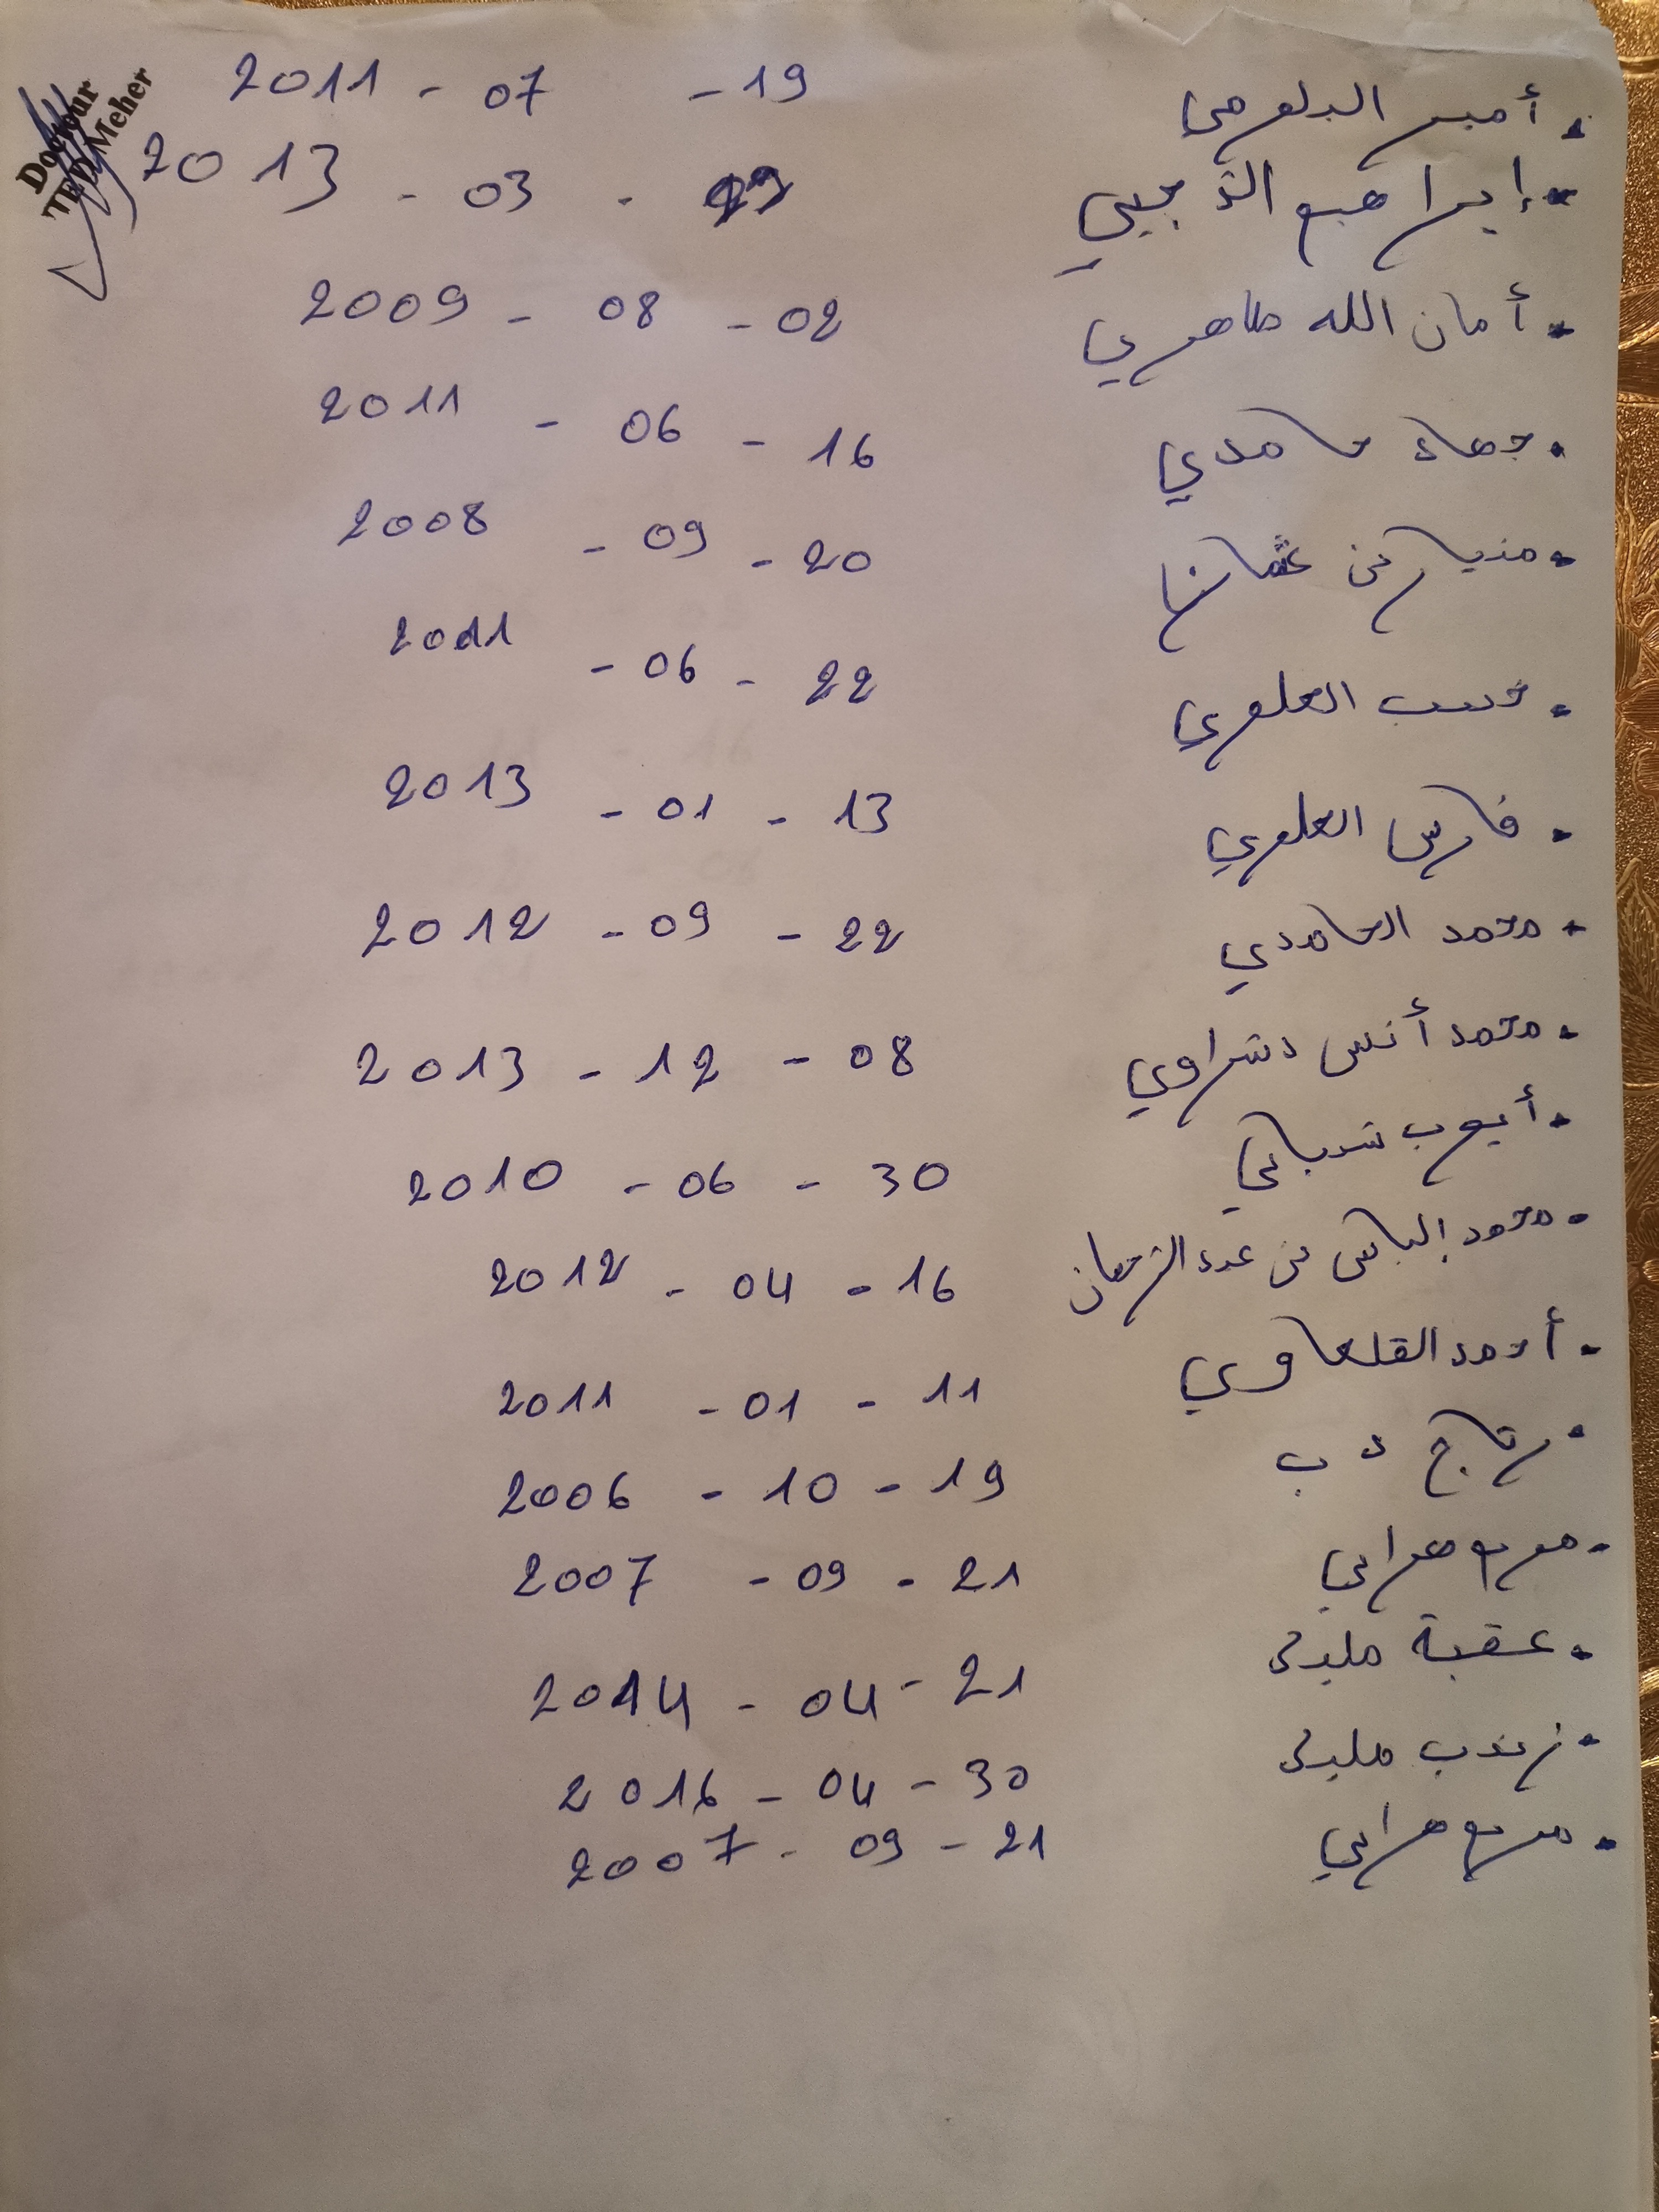 Docteur
TED Meher
أمير البلومي 19 - 07 - 2011
إبراهيم الذ بيبي - 03 - 2013
أمان الله طاهري 02 - 08 - 2009
جهاد حامدي 16 - 06 - 2011
منيار بن عثمان 20 - 09 - 2008
العلوي 22 - 06 - 2011
فارس العلوي 13 - 01 - 2013
محمد الحامدي 22 - 09 - 2012
محمد أنس دشراوي 08 - 12 - 2013
أيوب شيباني 30 - 06 - 2010
محمد إلياس بن عبد الرحمان 16 - 04 - 2012
أحمد القلعاوي 11 - 01 - 2011
د ب 19 - 10 - 2006
مريم هرابي 21 - 09 - 2007
عقبة مليكي 21 - 04 - 2014
زينب مليكي 30 - 04 - 2016
مريم هرابي 21 - 09 - 2007